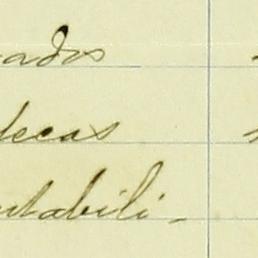 ados
decas
ntabili-